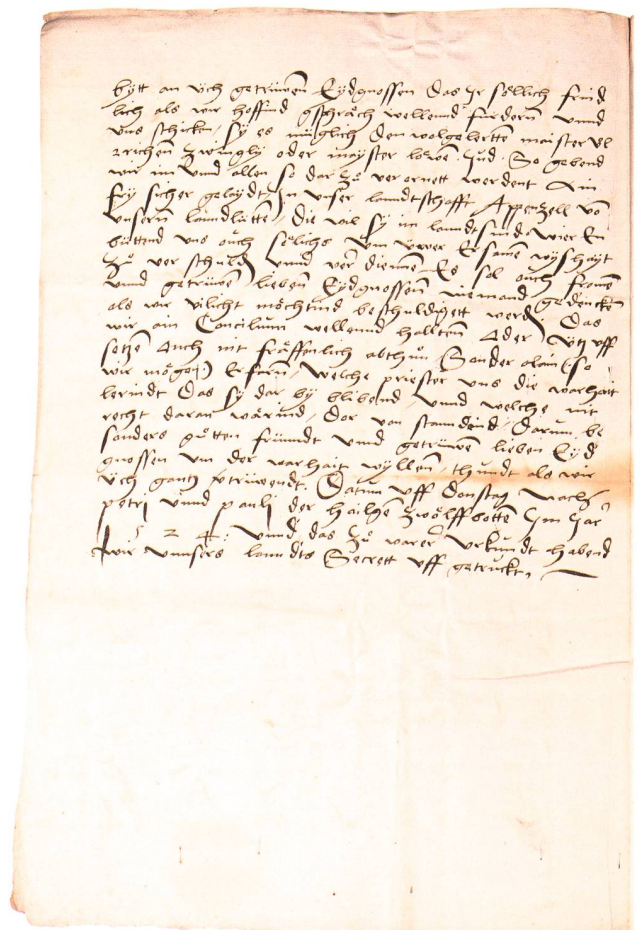 bytt an üch getrüwen Eydgnossen das Ir söllich fründ
lich als wir hoffend gspräch wellend fürdern unnd
uns schicken / sy es müglich den wolgelerten maister Ul
richen zwingly oder mayster löwen Jud. So gebend
wir im unnd allen so dar zü verornett werdent ain
fry sicher gelaydt / In unser lanndtschafft Appenzell vō
unsern lanndlütten / die wil sy im lannd sind. Wier
büttend uns ouch sölichs um üwer Ersamen wyßhayt
zü ver schuld unnd ver dienen Es sol ouch fromen
unnd getrüwen lieben Eydgnossenn niemand gedencken
als wir vilicht möchtind beschuldigett werd / Das
wir ain Concilium wellennd halltten Ader uff
setzen Auch nit fräffenlich abthün. Sonder alain (so
wir mögen) Erfarn / welche priester uns die warhait
lerindt das sy dar by blibend / unnd welche nit
recht daran wärind / dar von standind / Darum be
sonders gütten fründt unnd getrüwen lieben Eyd
gnossen um der warhait wyllen / thundt als wir
üch gantz vtrüwendt. Datum uff Donstag nach
petri unnd pauli der hailgē zwölffbotten Im Jar
1524: unnd das zü warer Urkundt habend
wir unnsers lanndts Secrett uff getruckt